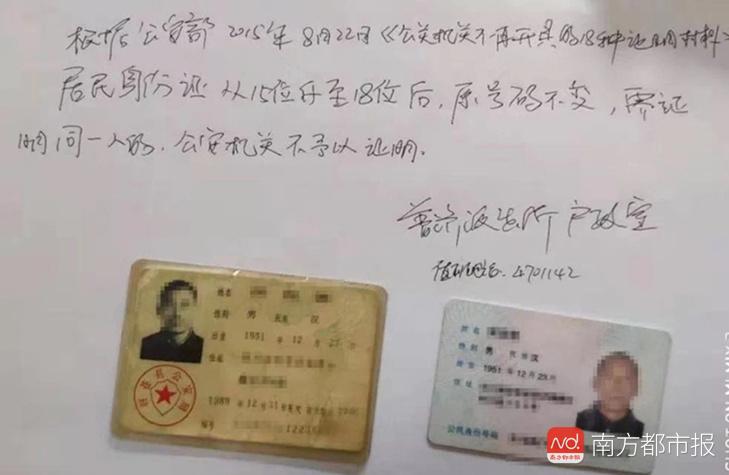 根据公安部 2015年8月22日《公安机关不再开具的18种证明材料》
居民身份证从15位升至18位后，原号码不变，需证
明同一人的，公安机关不予以证明。
普济派出所 户政室
值班电话：4701142
姓名
性别 男 民族 汉
出生 1951 年 12 月 23 日
住址
编号
姓名
性别 男 民族 汉
出生 1951 年 12 月 23 日
住址
公民身份号码
南方都市报
南方都市报